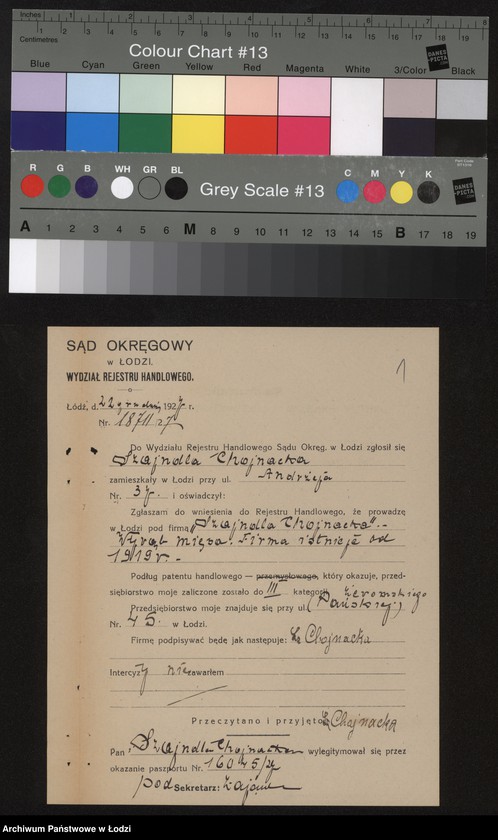 Inches 1 2 3 4 5 6 7 8
Centimetres 1 2 3 4 5 6 7 8 9 10 11 12 13 14 15 16 17 18 19
Colour Chart #13
DANES-PICTA
Blue Cyan Green Yellow Red Magenta White 3/Color Black
R G B WH GR BL Grey Scale #13 C M Y K
DANES-PICTA
A 1 2 3 4 5 6 M 8 9 10 11 12 13 14 15 B 17 18 19
1
SĄD OKRĘGOWY
w ŁODZI.
WYDZIAŁ REJESTRU HANDLOWEGO.
Łódź, d. 22 grudnia 1927 r.
Nr. 18711/27
Do Wydziału Rejestru Handlowego Sądu Okręg. w Łodzi zgłosił się
Szajndla Chojnacka
zamieszkały w Łodzi przy ul. Andrzeja
Nr. 37. i oświadczył:
Zgłaszam do wniesienia do Rejestru Handlowego, że prowadzę
w Łodzi pod firmą „Szajndla Chojnacka" .-
Wyrąb mięsa. Firma istnieje od
1919 r. -
Podług patentu handlowego — przemysłowego, który okazuje, przed-
siębiorstwo moje zaliczone zostało do III kategorji. Żeromskiego
Przedsiębiorstwo moje znajduje się przy ul. (Pańskiej)
Nr. 45. w Łodzi.
Firmę podpisywać będę jak następuje: Chojnacka
Intercyzy nie zawarłem
Przeczytano i przyjęto Chojnacka
Pan Szajndla Chojnacka wylegitymował się przez
okazanie paszportu Nr. 16045/
pod Sekretarz:
Archiwum Państwowe w Łodzi